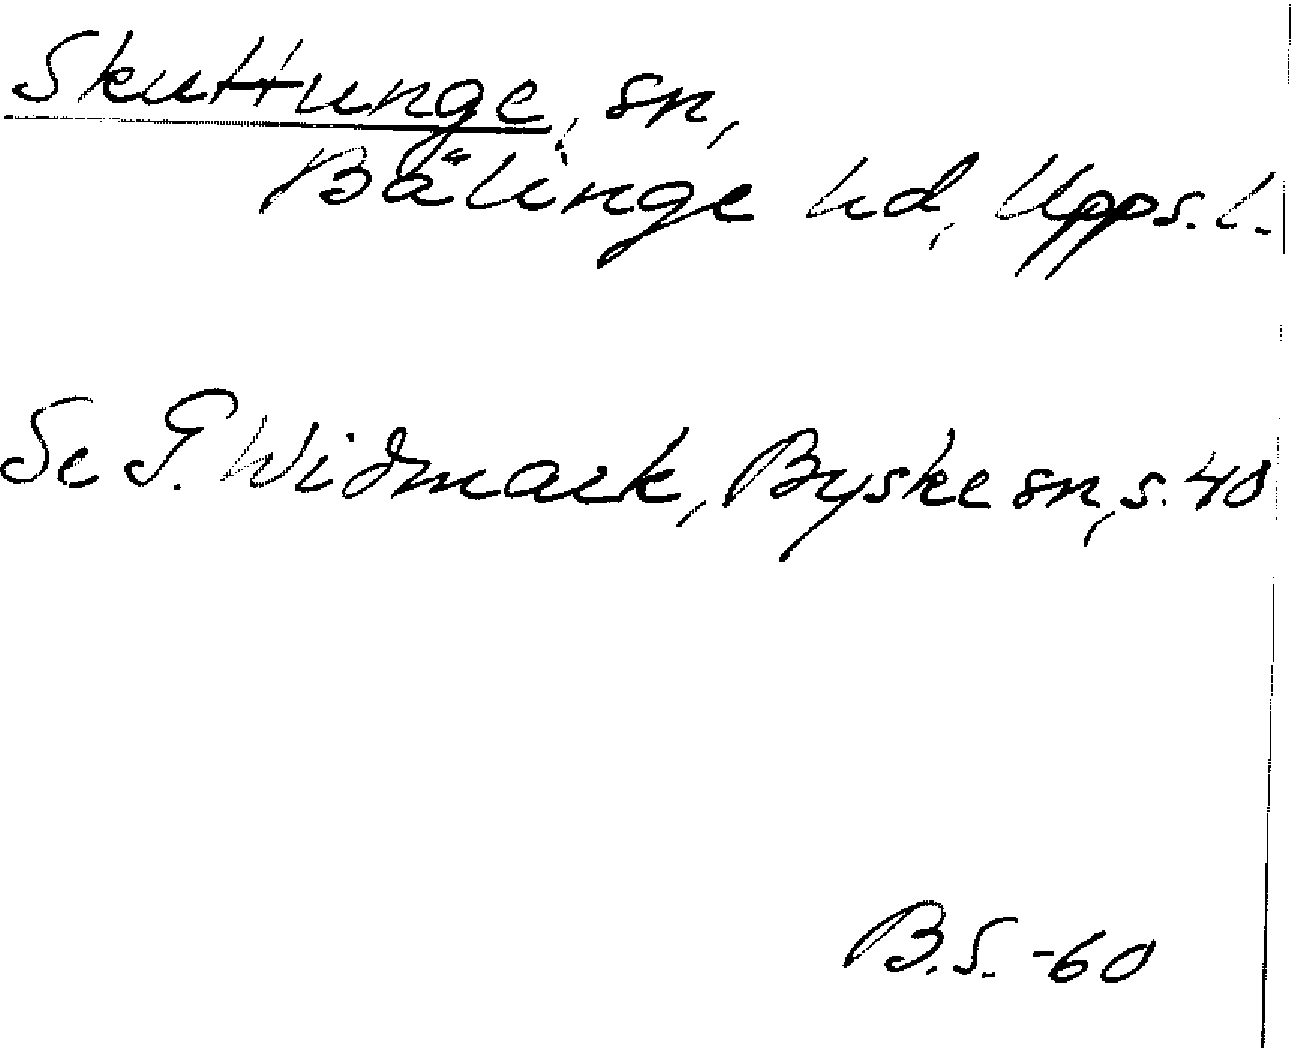 Skuttunge, sn,
Bälinge hd, Upps. l.
Se G. Widmark, Byske sn, s. 40
B.S. -60